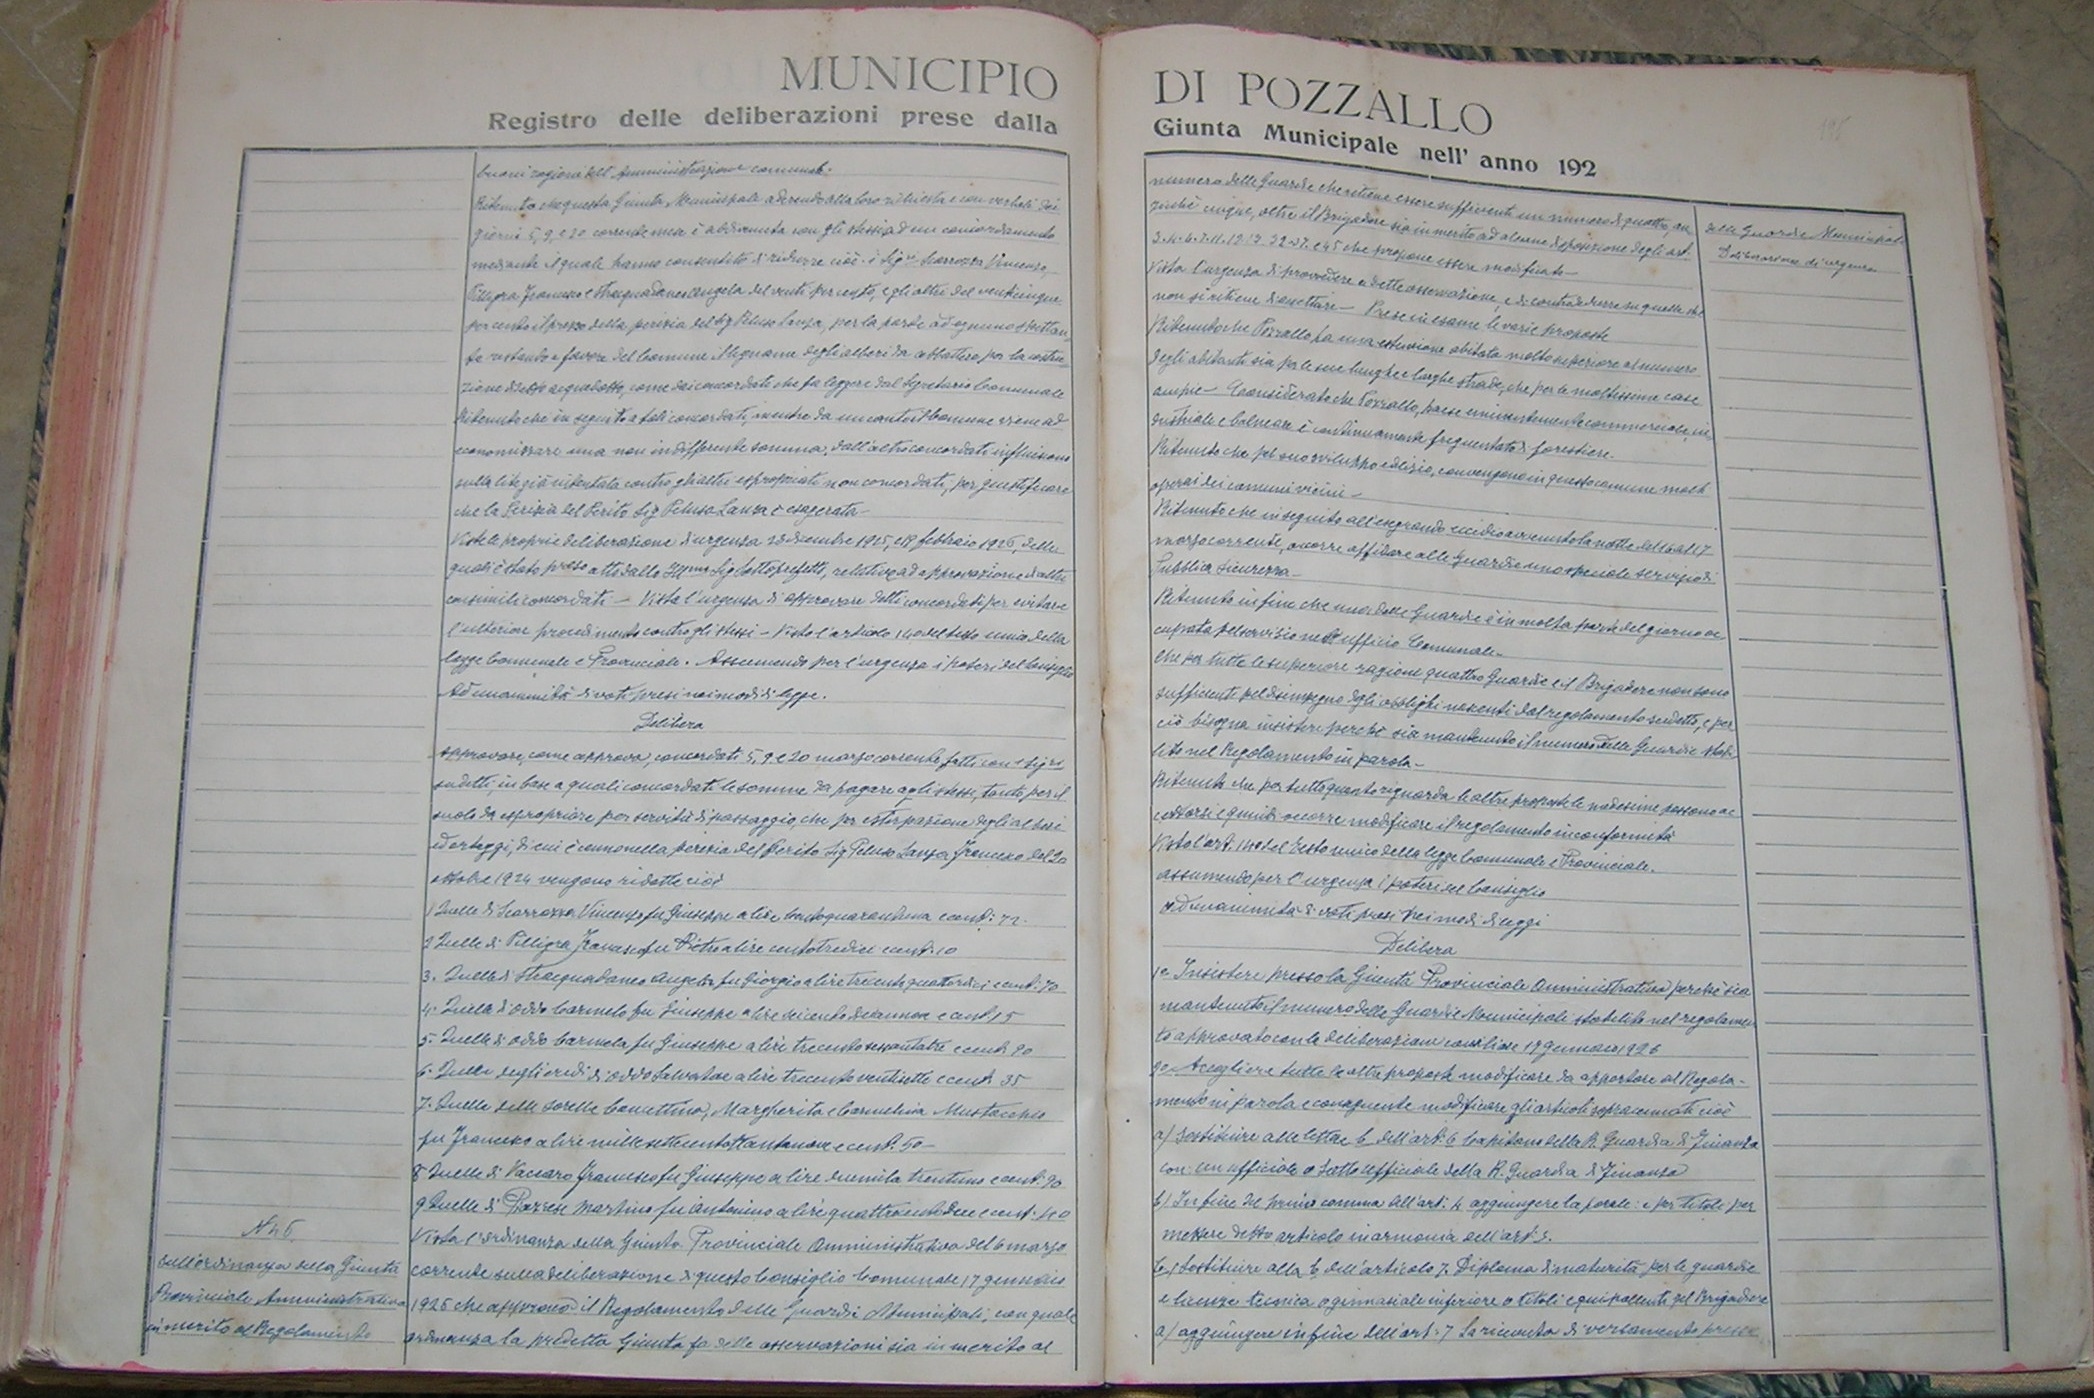 MUNICIPIO
Registro delle deliberazioni prese dalla
buoni ragioni dell'Amministrazione comunale.
Ritenuto che questa Giunta Municipale aderendo alla loro richiesta e con verbali dei
giorni 5, 9, e 20 corrente mese è addivenuta con gli stessi ad un concordamento
mediante il quale hanno consentito di ridurre cioè: i Sigri Scarrozza Vincenzo,
Pilligra Francesco e Stracquadaneo Angela del venti per cento, e gli altri del venticinque
per cento il prezzo della perizia del Sig Peluso Lanza, per la parte ad ognuno spettan
te restando a favore del Comune il legname degli alberi da abbattere per la costru
zione di detto acquedotto, come dai concordati che fa leggere dal Segretario Comunale
Ritenuto che in seguito a tali concordati, mentre da un canto il Comune viene ad
economizzare una non indifferente somma, dall'altro i concordati influiscono
sulla lite già intentata contro gli altri espropriati non concordati, per giustificare
che la Perizia del Perito Sig Peluso Lanza è esagerata
Viste le proprie deliberazione d'urgenza 28 dicembre 1925, e 18 febbraio 1926, delle
quali è stato preso atto dallo Illmo Sig Sottoprefetto, relative ad approvazione di altri
consimili concordati - Vista l'urgenza di approvare detti concordati per evitare
l'ulteriore procedimento contro gli stessi - Visto l'articolo 140 del testo unico della
legge Comunale e Provinciale. Assumendo per l'urgenza i poteri del Consiglio
Ad unanimità di voti presi nei modi di legge.
Delibera
approvare, come approva, concordati 5, 9 e 20 marzo corrente fatti con i Sigri
sudetti, in base a quali concordati le somme da pagare agli stessi, tanto per il
suolo da espropriare per servitù di passaggio, che per estirpazione degli alberi
ed ortaggi, di cui è cenno nella perizia del Perito Sig Peluso Lanza Francesco del 20
ottobre 1924 vengono ridotte cioè
1 Quelle di Scarrozza Vincenzo fu Giuseppe a lire centoquarantuna e cent: 72.
2 Quelle di Pilligra Francesco fu Pietro a lire centotredici e cent: 10
3. Quelle di Stracquadaneo Angela fu Giorgio a lire trecentoquattordici e cent: 70
4. Quella di Oddo Carmelo fu Giuseppe a lire seicento e cent 15
5. Quelle di Oddo Carmela fu Giuseppe a lire trecentosessantatre e cent 90
6. Quelle degli eredi di Oddo Salvatore a lire trecentoventisette e cent 35
7. Quelle delle sorelle Concettina, Margherita e Carmelina Mustacchio
fu Francesco a lire millesettecentottantanove e cent: 50
8 Quelle di Vaccaro Francesco fu Giuseppe a lire duemila trentuno e cent: 90
9 Quelle di Piazzese Martino fu Antonino a lire quattrocentodue e cent: 40
N 46.
sull'ordinanza della Giunta
Provinciale Amministrativa
in merito al Regolamento
Vista l'ordinanza della Giunta Provinciale Amministrativa del 6 marzo
corrente sulla deliberazione di questo Consiglio Comunale 17 gennaio
1926 che approvò il Regolamento delle Guardie Municipali, con quale
ordinanza la predetta Giunta fa delle osservazioni sia in merito al
DI POZZALLO
Giunta Municipale nell' anno 192
numero delle Guardie che ritiene essere sufficiente un numero di quattro, an
zichè cinque, oltre il Brigadiere sia in merito ad alcune disposizione degli art.
3. 4. 6. 7. 11. 12. 13. 32. 37. e 45 che propone essere modificate
Vista l'urgenza di provvedere a dette osservazione, e di controdedurre su quelle che
non si ritiene di accettare - Prese in esame le varie proposte
Ritenuto che Pozzallo ha una estensione abitata molto superiore al numero
degli abitanti sia per le sue lunghe e larghe strade, che per le moltissime case
ampie - Considerato che Pozzallo, paese eminentemente commerciale, in
dustriale e balneare è continuamente frequentato di forestiere.
Ritenuto che pel suo sviluppo edilizio, convengono in questo comune molti
operai dei comuni vicini -
Ritenuto che in seguito all'esegrando eccidio avvenuto la notte dal 16 al 17
marzo corrente, occorre affidare alle Guardie uno speciale servizio di
Pubblica Sicurezza -
Ritenuto in fine che una delle Guardie è in molta parte del giorno oc
cupata pel servizio nell'ufficio Comunale -
Che per tutte le superiore ragioni quattro Guardie e il Brigadiere non sono
sufficienti pel disimpegno degli obblighi nascenti dal regolamento sudetto, e per
ciò bisogna insistere perché sia mantenuto il numero delle Guardie stabi
lito nel Regolamento in parola -
Ritenuto che per tutto quanto riguarda le altre proposte le medesime possono ac
cettarsi e quindi occorre modificare il regolamento in conformità
Visto l'art. 140 del Testo unico della legge Comunale e Provinciale.
assumendo per l'urgenza i poteri del Consiglio
Ad unanimità di voti presi nei modi di leggi
Delibera
1o Insistere presso la Giunta Provinciale Amministrativa perché sia
mantenuto il numero delle Guardie Municipali stabilito nel regolamen
to approvato con la deliberazione consiliare 17 Gennaio 1926
2o Accogliere tutte le altre proposte modificare da apportare al Regola-
mento in parola e conseguente modificare gli articoli sopracennati cioè
a) Sostituire alle lettera b dell'art: 6 Capitano della R. Guardia di Finanza
con: un ufficiale o sotto ufficiale della R. Guardia di Finanza
b) In fine del primo comma dell'art: 4 aggiungere la parole: e per titoli per
mettere detto articolo in armonia dell'art: 5.
c) Sostituire alla b, dell'articolo 7. Diploma di maturità per le guardie
e licenza tecnica o ginnasiale inferiore o titoli equipollenti pel Brigadiere
a) aggiungere in fine dell'art: 7 la ricevuta di versamento presso
delle Guardie Municipali
Deliberazione di urgenza